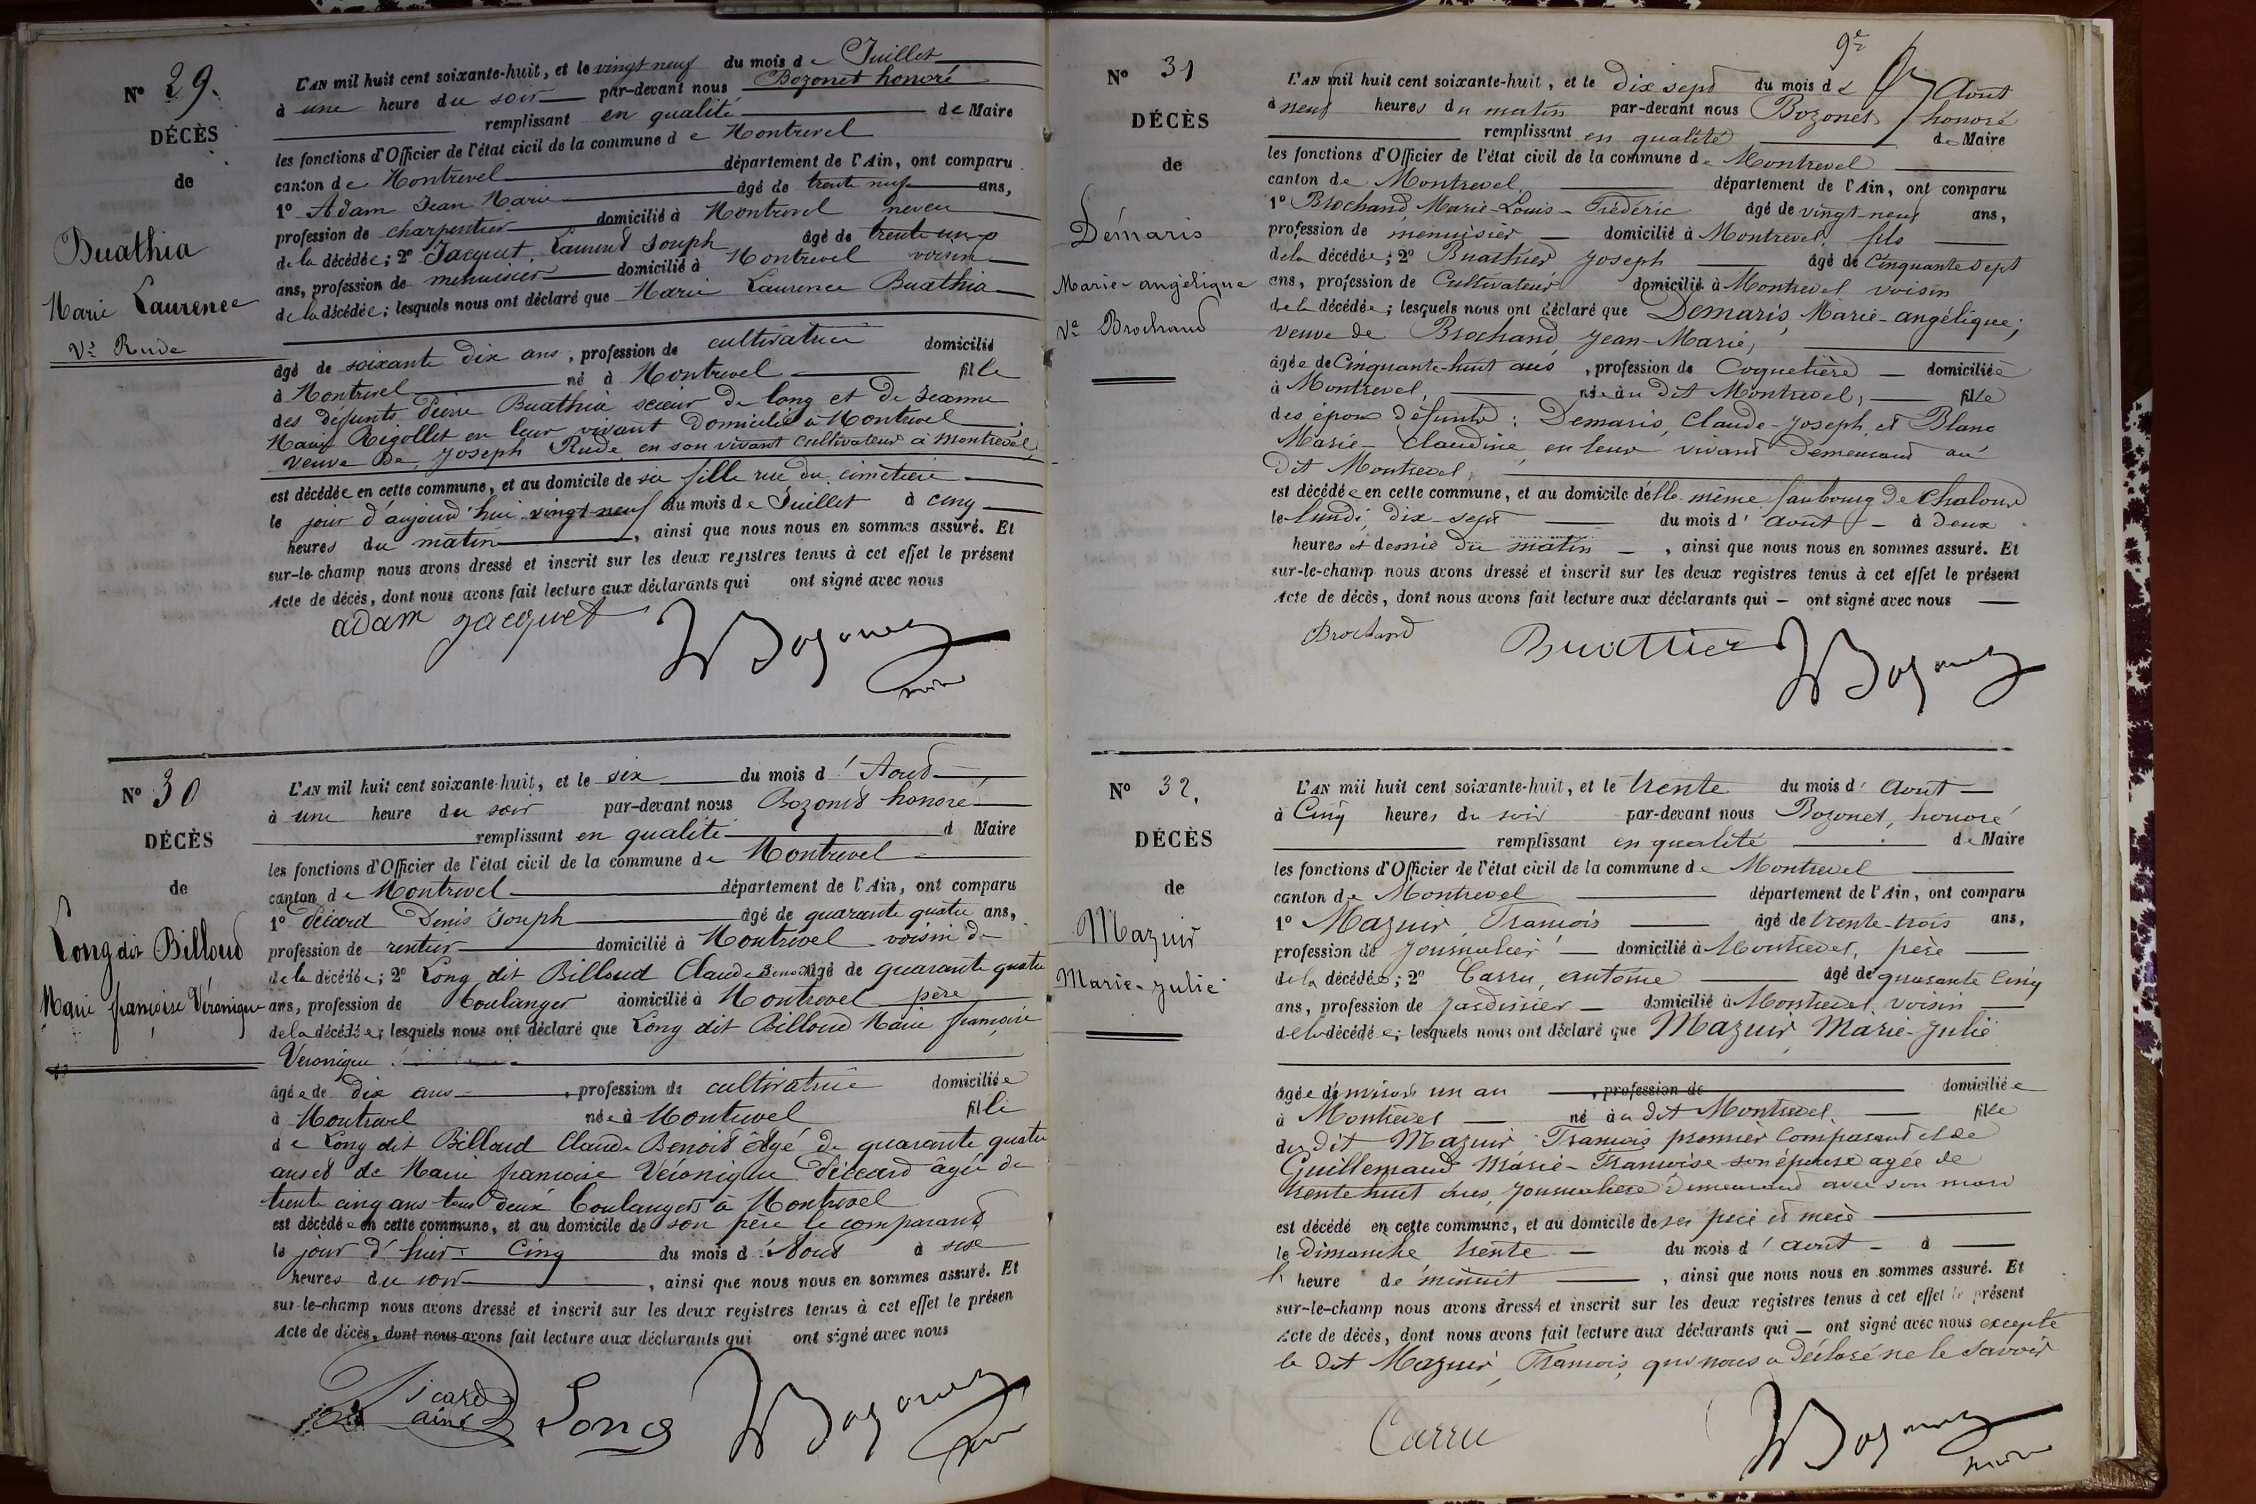 N° 29.
DÉCÈS
de
Buathia
Marie Laurence
Ve Rude
L'AN mil huit cent soixante-huit, et le vingt neuf du mois de Juillet
à une heure du soir par-devant nous Bozonet honoré
remplissant en qualité de Maire
les fonctions d'Officier de l'état civil de la commune de Montrevel
canton de Montrevel département de l'Ain, ont comparu
1° Adam Jean Marie âgé de trente neuf ans,
profession de charpentier domicilié à Montrevel neveu
de la décédée; 2° Jacquet, Laurent Joseph âgé de trente un
ans, profession de menuisier domicilié à Montrevel voisin
de la décédée; lesquels nous ont déclaré que Marie Laurence Buathia
âgé de soixante dix ans, profession de cultivatrice domicilié
à Montrevel né à Montrevel fille
des défunts Pierre Buathia scieur de long et de Jeanne
Marie Rigollet en leur vivant domiciliés à Montrevel
veuve de Joseph Rude en son vivant cultivateur à Montrevel,
est décédée en cette commune, et au domicile de sa fille rue du cimetière
le jour d'aujourd'hui vingt-neuf du mois de Juillet à cinq
heures du matin, ainsi que nous nous en sommes assuré. Et
sur-le-champ nous avons dressé et inscrit sur les deux registres tenus à cet effet le présent
Acte de décès, dont nous avons fait lecture aux déclarants qui ont signé avec nous
adam jacquet Bozonet
maire
N° 30
DÉCÈS
de
Long dit Billoud
Marie françoise Véronique
L'AN mil huit cent soixante-huit, et le six du mois d'Aout
à une heure du soir par-devant nous Bozonet honoré
remplissant en qualité d Maire
les fonctions d'Officier de l'état civil de la commune de Montrevel
canton de Montrevel département de l'Ain, ont comparu
1° Picard Denis Joseph âgé de quarante quatre ans,
profession de rentier domicilié à Montrevel voisin de
de la décédée; 2° Long dit Billoud Claude Benoit âgé de quarante quatre
ans, profession de boulanger domicilié à Montrevel père
de la décédée; lesquels nous ont déclaré que Long dit Billoud Marie françoise
Véronique
âgée de dix ans, profession de cultivatrice domiciliée
à Montrevel née à Montrevel fille
de Long dit Billoud Claude Benoit âgé de quarante quatre
ans et de Marie françoise Véronique Piccard âgée de
trente cinq ans tous deux boulangers à Montrevel
est décédée en cette commune, et au domicile de son père le comparant
le jour d'hier cinq du mois d'Aout à six
heures du soir, ainsi que nous nous en sommes assuré. Et
sur-le-champ nous avons dressé et inscrit sur les deux registres tenus à cet effet le présen
Acte de décès, dont nous avons fait lecture aux déclarants qui ont signé avec nous
Picard
ainé Long Bozonet
maire
9e
N° 31
DÉCÈS
de
Démaris
Marie-angélique
Ve Brochand
L'AN mil huit cent soixante-huit, et le dix sept du mois d Août
à neuf heures du matin par-devant nous Bozonet honoré
remplissant en qualité de Maire
les fonctions d'Officier de l'état civil de la commune de Montrevel
canton de Montrevel, département de l'Ain, ont comparu
1° Brochand Marie-Louis-Frédéric âgé de vingt-neuf ans,
profession de menuisier domicilié à Montrevel, fils
de la décédée; 2° Buathier Joseph âgé de Cinquante sept
ans, profession de Cultivateur domicilié à Montrevel voisin
de la décédée; lesquels nous ont déclaré que Demaris, Marie-angélique;
veuve de Brochand Jean-Marie,
âgée de Cinquante-huit ans, profession de Coquetière domiciliée
à Montrevel, née au dit Montrevel, fille
des époux défunts: Demaris, Claude-Joseph, et Blanc
Marie-Claudine, en leur vivant demeurant au
dit Montrevel,
est décédée en cette commune, et au domicile d'elle-même faubourg de Chalons
le lundi, dix-sept du mois d'août à deux
heures et demie du matin, ainsi que nous nous en sommes assuré. Et
sur-le-champ nous avons dressé et inscrit sur les deux registres tenus à cet effet le présent
Acte de décès, dont nous avons fait lecture aux déclarants qui ont signé avec nous
Brochand Buattier Bozonet
N° 32.
DÉCÈS
de
Mazuir
Marie-Julie
L'AN mil huit cent soixante-huit, et le trente du mois d'Août
à Cinq heures du soir par-devant nous Bozonet, honoré
remplissant en qualité de Maire
les fonctions d'Officier de l'état civil de la commune de Montrevel
canton de Montrevel département de l'Ain, ont comparu
1° Mazuir, François âgé de trente-trois ans,
profession de Journalier domicilié à Montrevel, père
de la décédée; 2° Carru, antoine âgé de quarante Cinq
ans, profession de Jardinier domicilié à Montrevel, voisin
de la décédée; lesquels nous ont déclaré que Mazuir, Marie-Julie
âgée d'environ un an, profession de domiciliée
à Montrevel né au dit Montrevel, fille
du dit Mazuir François premier Comparant et de
Guillemaud Marie-Françoise son épouse agée de
trente huit ans, journalière demeurant avec son mari
est décédé en cette commune, et au domicile de ses père et mère
le Dimanche trente du mois d'août à
l' heure de minuit, ainsi que nous nous en sommes assuré. Et
sur-le-champ nous avons dressé et inscrit sur les deux registres tenus à cet effet le présent
Acte de décès, dont nous avons fait lecture aux déclarants qui ont signé avec nous excepté
le dit Mazuir, François, qui nous a déclaré ne le savoir
Carru Bozonet
maire